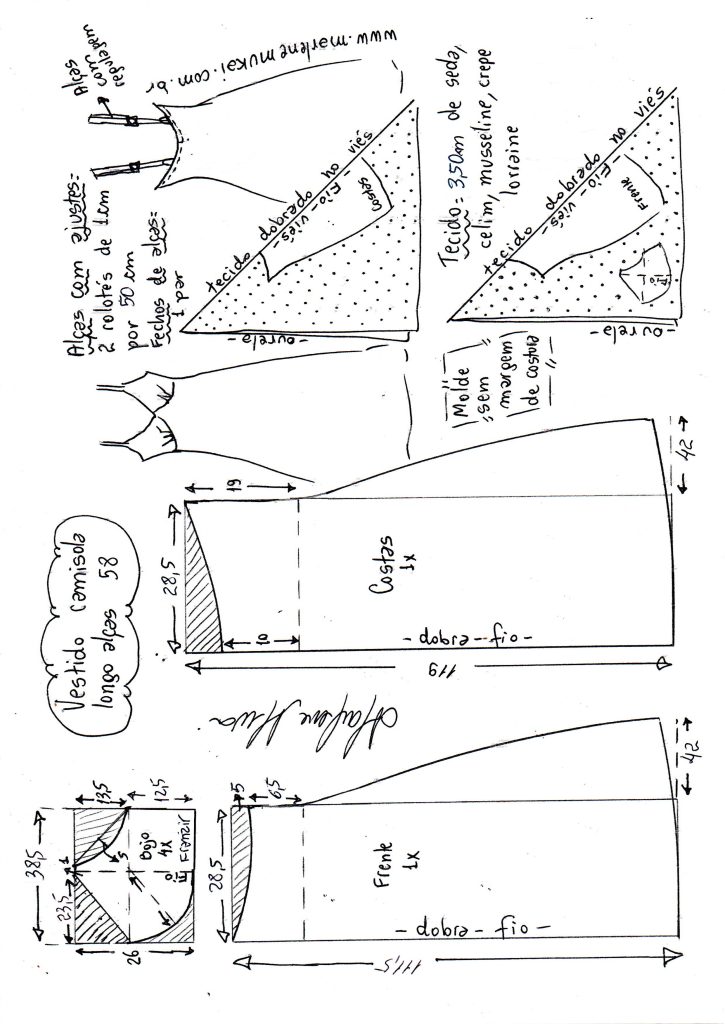 Vestido camisola
longo alças 58
Alças com ajustes=
2 rolotês de 1cm
por 50 cm
Fechos de alças=
1 par
Alças
com
regulagem
www.marlenemukai.com.br
Tecido= 3,50cm de seda,
celim, musseline, crepe
lorraine
Molde
sem
margem
de costura
tecido dobrado no viés
-fio-viés-
Costas
-ourela-
tecido dobrado no viés
-fio-viés-
Frente
Fio
-ourela-
38,5
23,5
1
13,5
12,5
5
26
Bojo
4X
Fio
Franzir
28,5
5
6,5
Frente
1X
-dobra-fio-
111,5
42
28,5
19
10
Costas
1x
-dobra-fio-
119
42